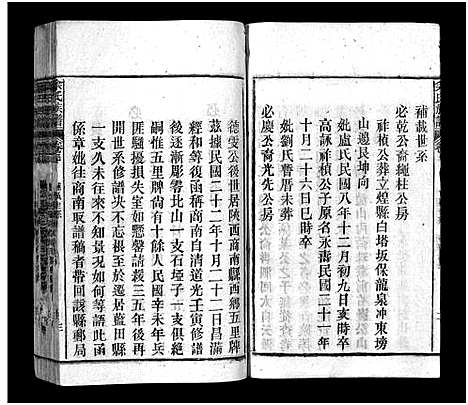 補載世系
必乾公裔繩柱公房
祥楨公葬立煌縣白塔坂保龍泉冲東塝
山邊艮坤向
妣盧氏民國八年十二月初九日亥時卒
高詠祥楨公子名永壽民國三十一年
十月二十六日巳時卒
妣劉氏瞽厝未葬
必慶公裔光先公房
德雯公後世居陝西商南縣西鄉五里牌
茲據民國二十二年十月二十二日昌滿
經和等復函稱商南自清道光壬寅修譜
後迄逐漸彫零比山一支石埡子一支俱絕
嗣惟五里牌尙有十餘人民國辛未年兵
匪騷擾損失室如懸罄請裁三五年後再
開世系修譜決不忘根至於遷居藍田縣
一支久未往來不知景現如何等語此函
係商南取譜稿者帶回該縣郵局